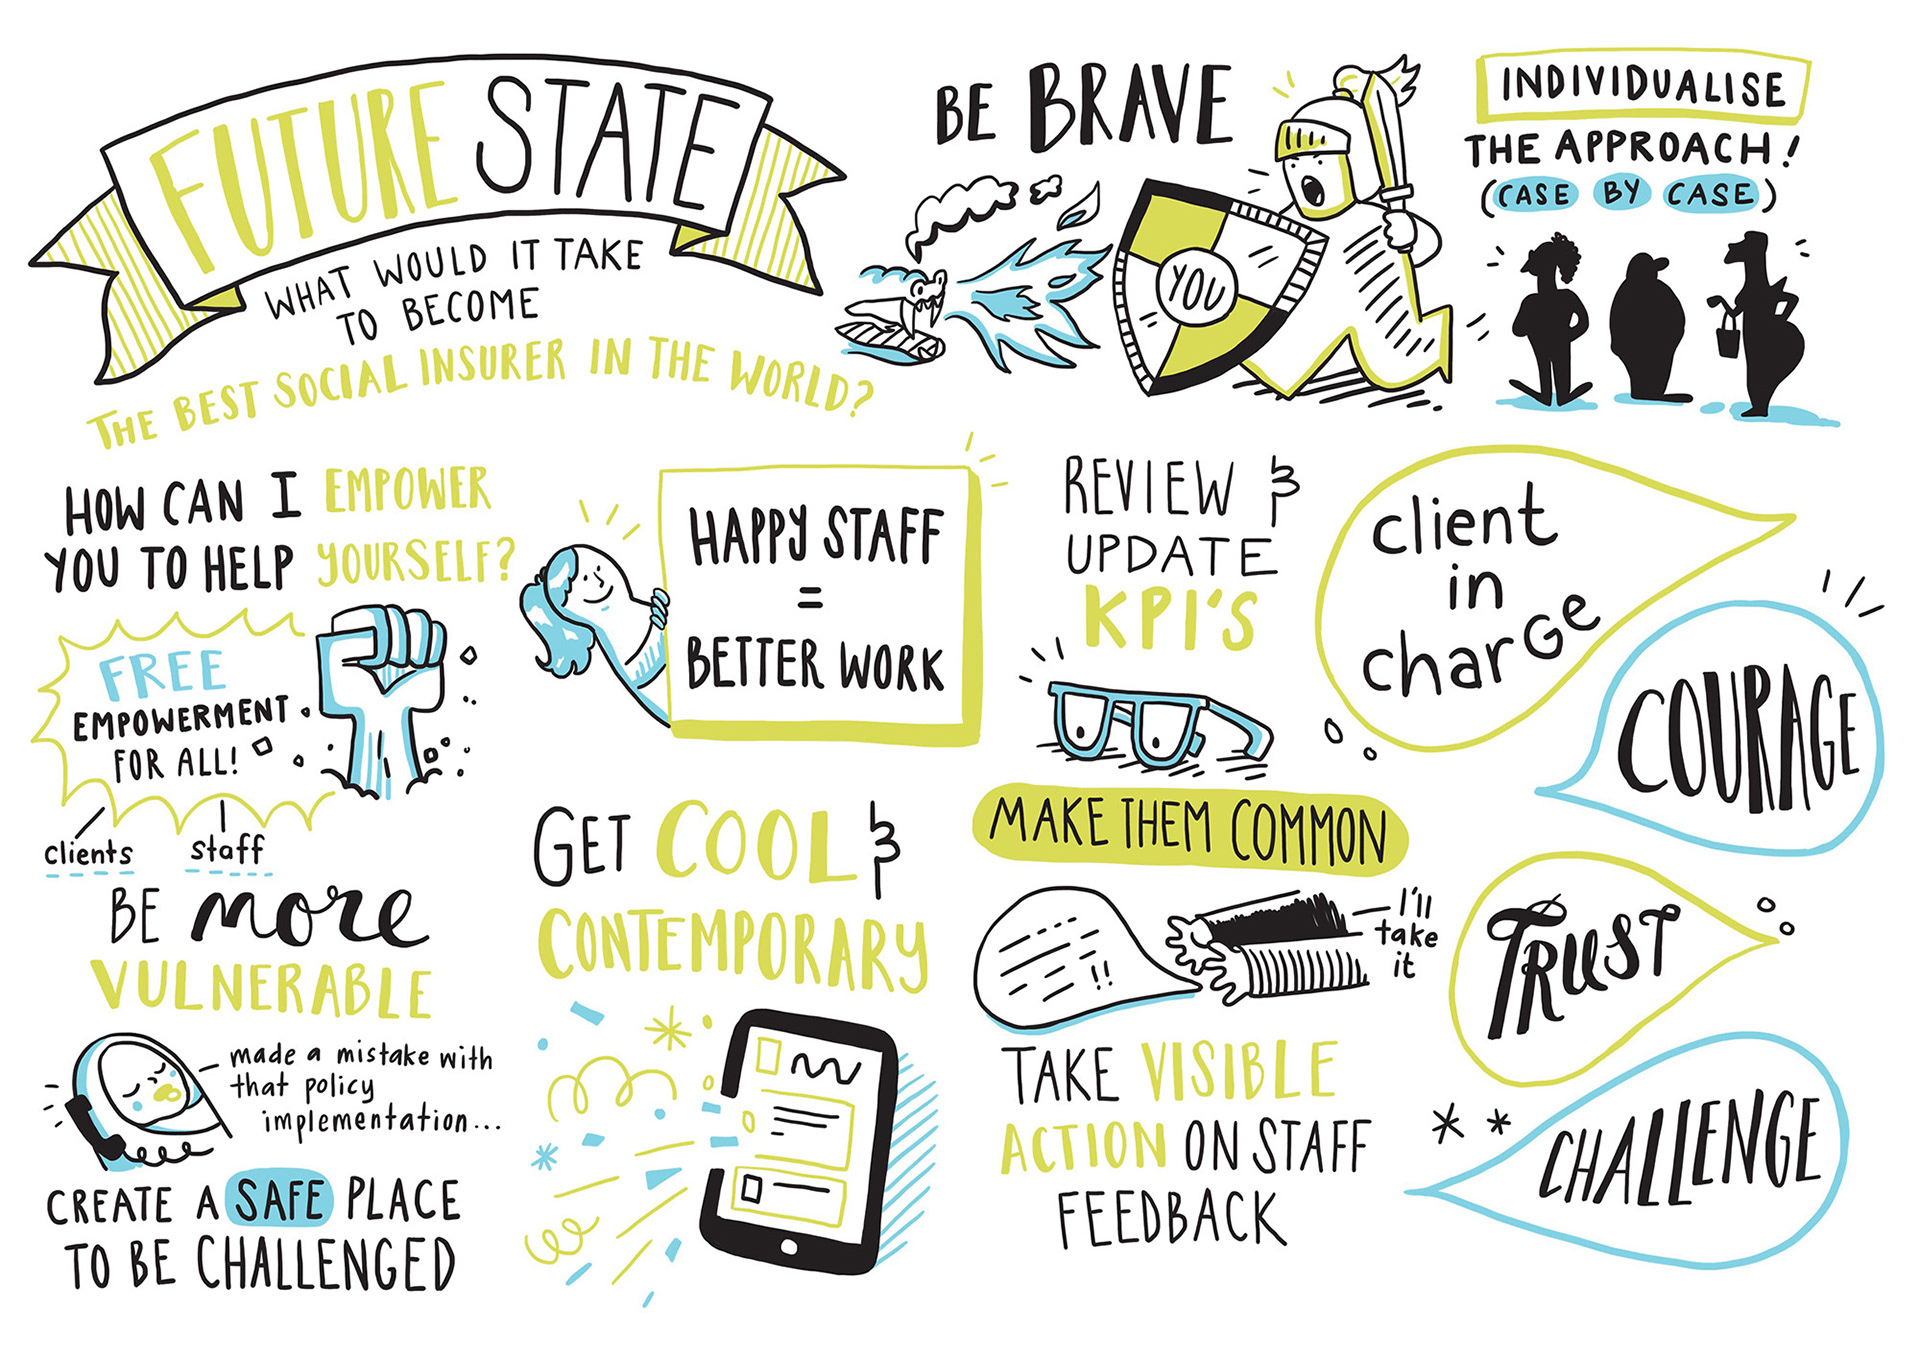 FUTURE STATE
WHAT WOULD IT TAKE
TO BECOME
THE BEST SOCIAL INSURER IN THE WORLD?
BE BRAVE
YOU
INDIVIDUALISE
THE APPROACH!
(CASE BY CASE)
HOW CAN I EMPOWER
YOU TO HELP YOURSELF?
FREE
EMPOWERMENT
FOR ALL!
clients
staff
HAPPY STAFF
=
BETTER WORK
REVIEW &
UPDATE
KPI'S
MAKE THEM COMMON
client
in
charge
COURAGE
BE more
VULNERABLE
made a mistake with
that policy
implementation...
CREATE A SAFE PLACE
TO BE CHALLENGED
GET COOL &
CONTEMPORARY
!!
I'll
take
it
TAKE VISIBLE
ACTION ON STAFF
FEEDBACK
TRUST
CHALLENGE